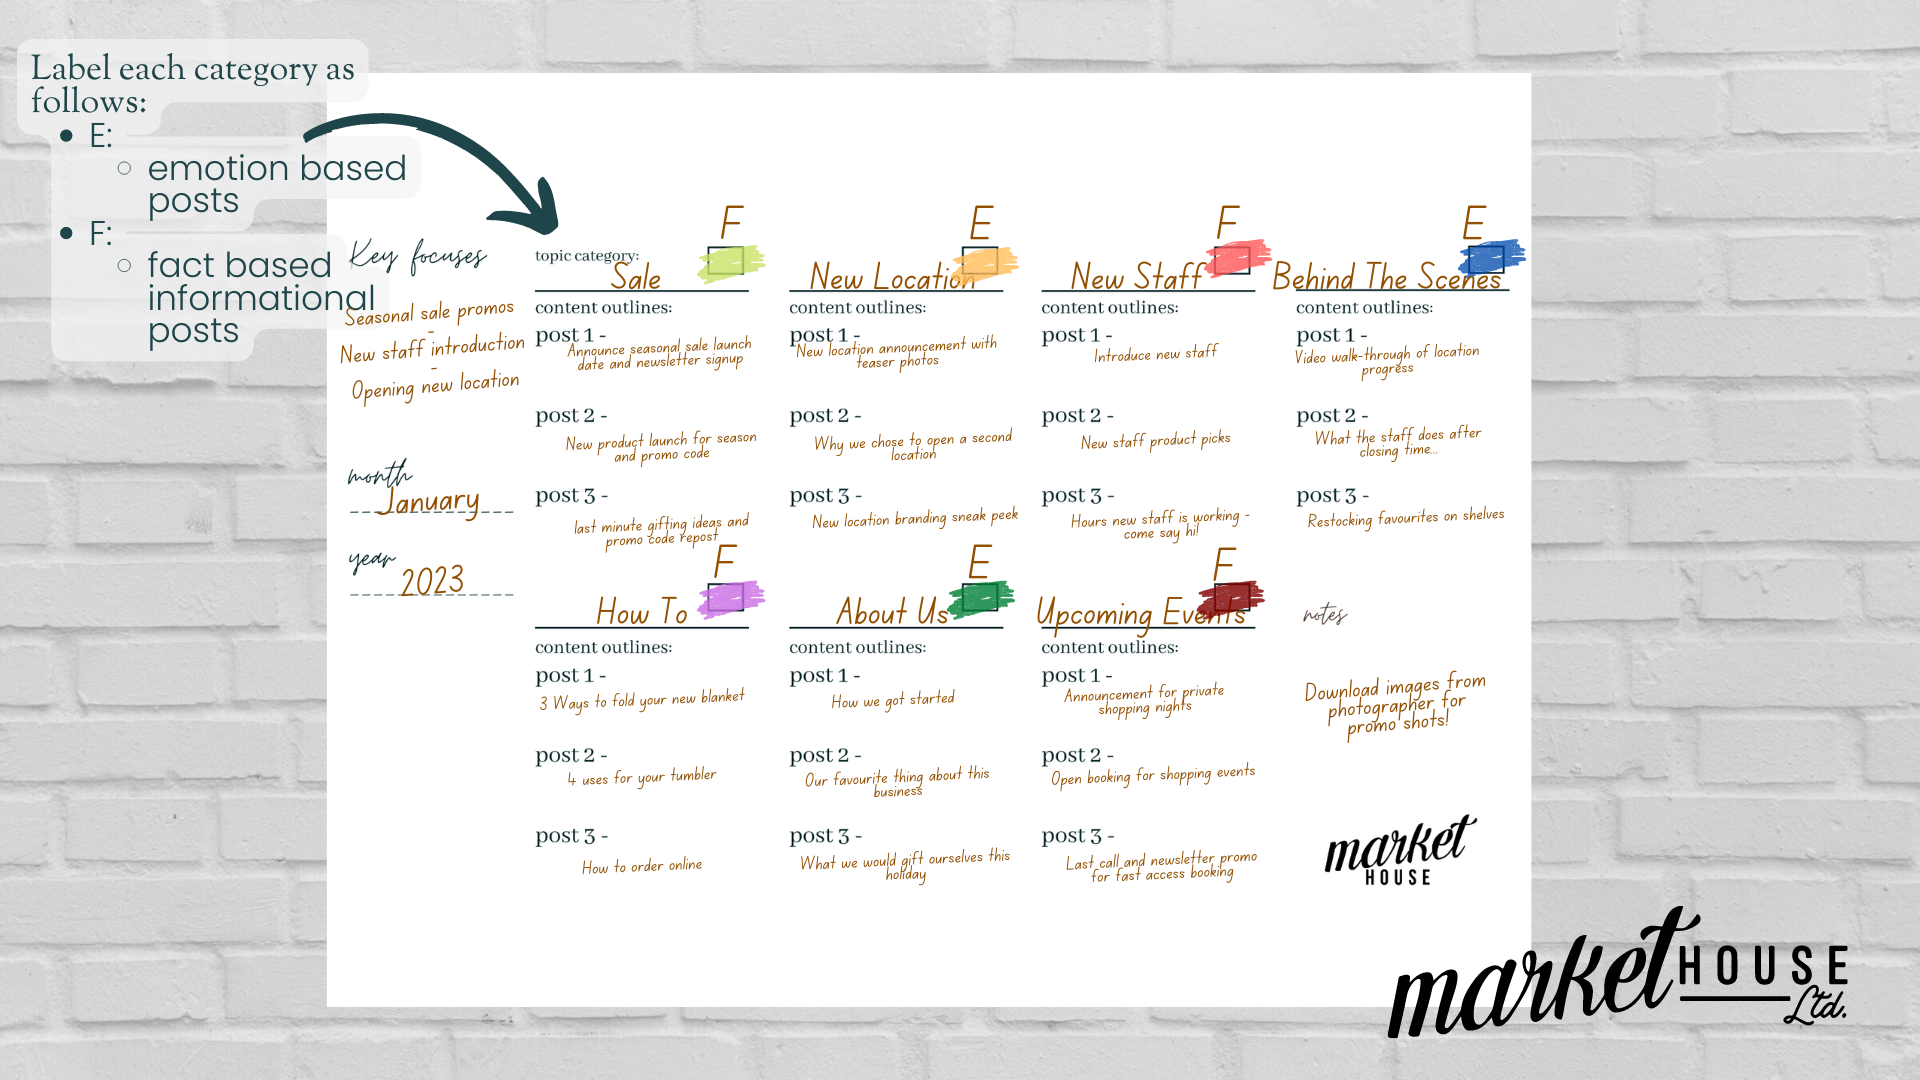 Label each category as
follows:
• E:
○ emotion based
posts
• F:
○ fact based
informational
posts
Key focuses
Seasonal sale promos
-
New staff introduction
-
Opening new location
month
January
year
2023
F
topic category:
Sale
content outlines:
post 1 -
Announce seasonal sale launch
date and newsletter signup
post 2 -
New product launch for season
and promo code
post 3 -
last minute gifting ideas and
promo code repost
E
New Location
content outlines:
post 1 -
New location announcement with
teaser photos
post 2 -
Why we chose to open a second
location
post 3 -
New location branding sneak peek
F
New Staff
content outlines:
post 1 -
Introduce new staff
post 2 -
New staff product picks
post 3 -
Hours new staff is working -
come say hi!
E
Behind The Scenes
content outlines:
post 1 -
Video walk-through of location
progress
post 2 -
What the staff does after
closing time...
post 3 -
Restocking favourites on shelves
F
How To
content outlines:
post 1 -
3 Ways to fold your new blanket
post 2 -
4 uses for your tumbler
post 3 -
How to order online
E
About Us
content outlines:
post 1 -
How we got started
post 2 -
Our favourite thing about this
business
post 3 -
What we would gift ourselves this
holiday
F
Upcoming Events
content outlines:
post 1 -
Announcement for private
shopping nights
post 2 -
Open booking for shopping events
post 3 -
Last call and newsletter promo
for fast access booking
notes
Download images from
photographer for
promo shots!
market
HOUSE
market HOUSE
Ltd.